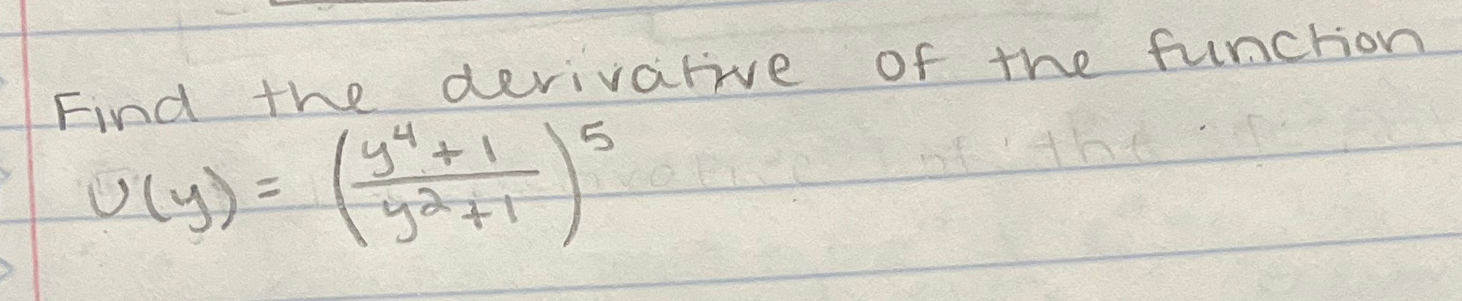 Find the derivative of the function
U(y) = ((y^4 + 1)/(y^2 + 1))^5